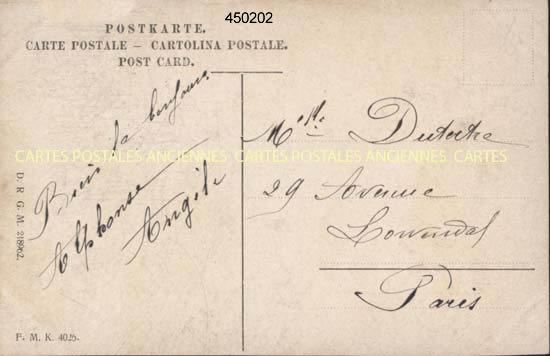 450202
POSTKARTE.
CARTE POSTALE – CARTOLINA POSTALE.
POST CARD.
Bien la bonjour
Alphonse
Angèle
Mr Me Dutertre
29 Avenue
Lowendal
Paris
CARTES POSTALES ANCIENNES CARTES POSTALES ANCIENNES
D. R. G. M. 218962.
F. M. K. 4025.